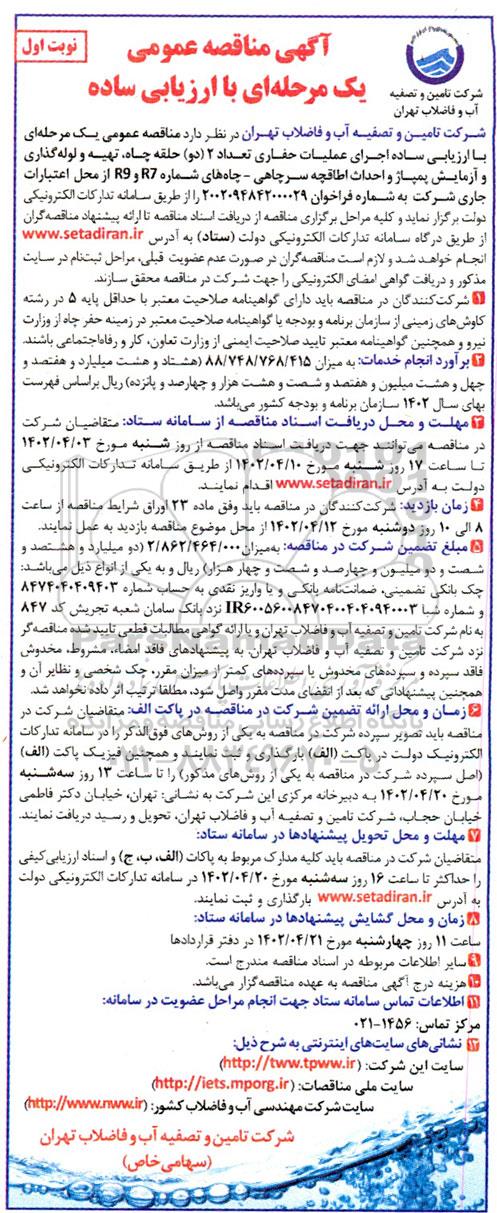 آگهی مناقصه عمومی
یک مرحله‌ای با ارزیابی ساده
نوبت اول
شرکت تامین و تصفیه
آب و فاضلاب تهران
شرکت تامین و تصفیه آب و فاضلاب تهران در نظر دارد مناقصه عمومی یک مرحله‌ای
با ارزیابی ساده اجرای عملیات حفاری تعداد ۲ (دو) حلقه چاه، تهیه و لوله‌گذاری
و آزمایش پمپاژ و احداث اطاقچه سرچاهی - چاه‌های شماره R7 و R9 از محل اعتبارات
جاری شرکت به شماره فراخوان ۲۰۰۲۰۹۴۸۴۲۰۰۰۰۲۹ را از طریق سامانه تدارکات الکترونیکی
دولت برگزار نماید و کلیه مراحل برگزاری مناقصه از دریافت اسناد مناقصه تا ارائه پیشنهاد مناقصه‌گران
از طریق درگاه سامانه تدارکات الکترونیکی دولت (ستاد) به آدرس www.setadiran.ir
انجام خواهد شد و لازم است مناقصه‌گران در صورت عدم عضویت قبلی، مراحل ثبت‌نام در سایت
مذکور و دریافت گواهی امضای الکترونیکی را جهت شرکت در مناقصه محقق سازند.
۱ شرکت‌کنندگان در مناقصه باید دارای گواهینامه صلاحیت معتبر با حداقل پایه ۵ در رشته
کاوش‌های زمینی از سازمان برنامه و بودجه یا گواهینامه صلاحیت معتبر در زمینه حفر چاه از وزارت
نیرو و همچنین گواهینامه معتبر تایید صلاحیت ایمنی از وزارت تعاون، کار و رفاه‌اجتماعی باشند.
۲ برآورد انجام خدمات: به میزان ۸۸/۷۴۸/۷۶۸/۴۱۵ (هشتاد و هشت میلیارد و هفتصد و
چهل و هشت میلیون و هفتصد و شصت و هشت هزار و چهارصد و پانزده) ریال براساس فهرست
بهای سال ۱۴۰۲ سازمان برنامه و بودجه کشور می‌باشد.
۳ مهلت و محل دریافت اسناد مناقصه از سامانه ستاد: متقاضیان شرکت
در مناقصه می‌توانند جهت دریافت اسناد مناقصه از روز شنبه مورخ ۱۴۰۲/۰۴/۰۳
تا ساعت ۱۷ روز شنبه مورخ ۱۴۰۲/۰۴/۱۰ از طریق سامانه تدارکات الکترونیکی
دولت به آدرس www.setadiran.ir اقدام نمایند.
۴ زمان بازدید: شرکت‌کنندگان در مناقصه باید وفق ماده ۲۳ اوراق شرایط مناقصه از ساعت
۸ الی ۱۰ روز دوشنبه مورخ ۱۴۰۲/۰۴/۱۲ از محل موضوع مناقصه بازدید به عمل نمایند.
۵ مبلغ تضمین شرکت در مناقصه: به‌میزان ۲/۸۶۲/۴۶۴/۰۰۰ (دو میلیارد و هشتصد و
شصت و دو میلیون و چهارصد و شصت و چهار هزار) ریال و به یکی از انواع ذیل می‌باشد:
چک بانکی تضمینی، ضمانت‌نامه بانکی و یا واریز نقدی به حساب شماره ۸۴۷۴۰۴۰۴۰۹۴۰۳
و شماره شبا IR۶۰۰۵۶۰۰۸۴۷۰۴۰۰۴۰۴۰۹۴۰۰۳ نزد بانک سامان شعبه تجریش کد ۸۴۷
به نام شرکت تامین و تصفیه آب و فاضلاب تهران و یا ارائه گواهی مطالبات قطعی تایید شده مناقصه‌گر
نزد شرکت تامین و تصفیه آب و فاضلاب تهران. به پیشنهادهای فاقد امضاء، مشروط، مخدوش
فاقد سپرده و سپرده‌های مخدوش یا سپرده‌های کمتر از میزان مقرر، چک شخصی و نظایر آن و
همچنین پیشنهاداتی که بعد از انقضای مدت مقرر واصل شود، مطلقا ترتیب اثر داده نخواهد شد.
۶ زمان و محل ارائه تضمین شرکت در مناقصه در پاکت الف: متقاضیان شرکت در
مناقصه باید تصویر سپرده شرکت در مناقصه به یکی از روش‌های فوق‌الذکر را در سامانه تدارکات
الکترونیک دولت در پاکت (الف) بارگذاری و ثبت نمایند و همچنین فیزیک پاکت (الف)
(اصل سپرده شرکت در مناقصه به یکی از روش‌های مذکور) را تا ساعت ۱۳ روز سه‌شنبه
مورخ ۱۴۰۲/۰۴/۲۰ به دبیرخانه مرکزی این شرکت به نشانی: تهران، خیابان دکتر فاطمی
خیابان حجاب، شرکت تامین و تصفیه آب و فاضلاب تهران، تحویل و رسید دریافت نمایند.
۷ مهلت و محل تحویل پیشنهادها در سامانه ستاد:
متقاضیان شرکت در مناقصه باید کلیه مدارک مربوط به پاکات (الف، ب، ج) و اسناد ارزیابی‌کیفی
را حداکثر تا ساعت ۱۶ روز سه‌شنبه مورخ ۱۴۰۲/۰۴/۲۰ در سامانه تدارکات الکترونیکی دولت
به آدرس www.setadiran.ir بارگذاری و ثبت نمایند.
۸ زمان و محل گشایش پیشنهادها در سامانه ستاد:
ساعت ۱۱ روز چهارشنبه مورخ ۱۴۰۲/۰۴/۲۱ در دفتر قراردادها
۹ سایر اطلاعات مربوطه در اسناد مناقصه مندرج است.
۱۰ هزینه درج آگهی مناقصه به عهده مناقصه‌گزار می‌باشد.
۱۱ اطلاعات تماس سامانه ستاد جهت انجام مراحل عضویت در سامانه:
مرکز تماس: ۱۴۵۶-۰۲۱
۱۲ نشانی‌های سایت‌های اینترنتی به شرح ذیل:
سایت این شرکت: (http://tww.tpww.ir)
سایت ملی مناقصات: (http://iets.mporg.ir)
سایت شرکت مهندسی آب و فاضلاب کشور: (http://www.nww.ir)
شرکت تامین و تصفیه آب و فاضلاب تهران
(سهامی خاص)